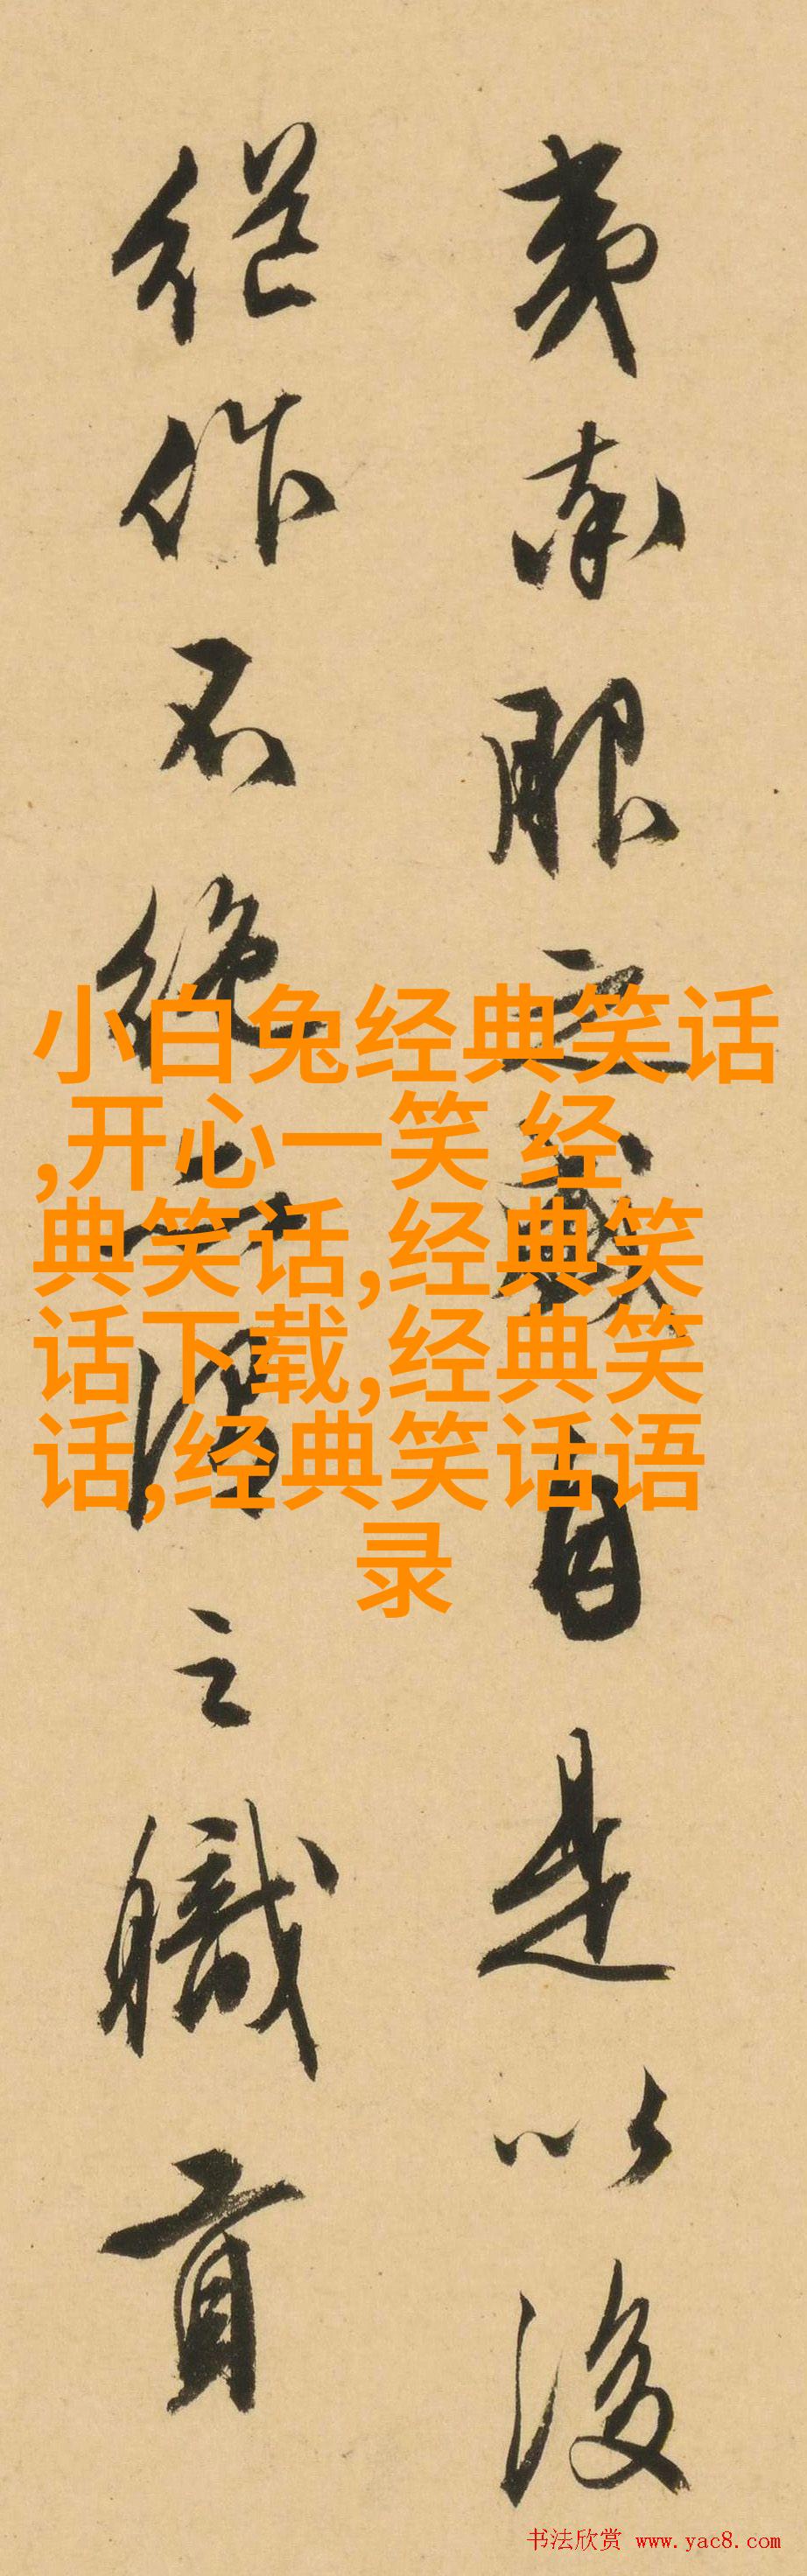 夷来服之自是以後
继作不絶之職貢
小白兔经典笑话
,开心一笑 经
典笑话,经典笑
话下载,经典笑
话,经典笑话语
录
书法欣赏 www.yac8.com